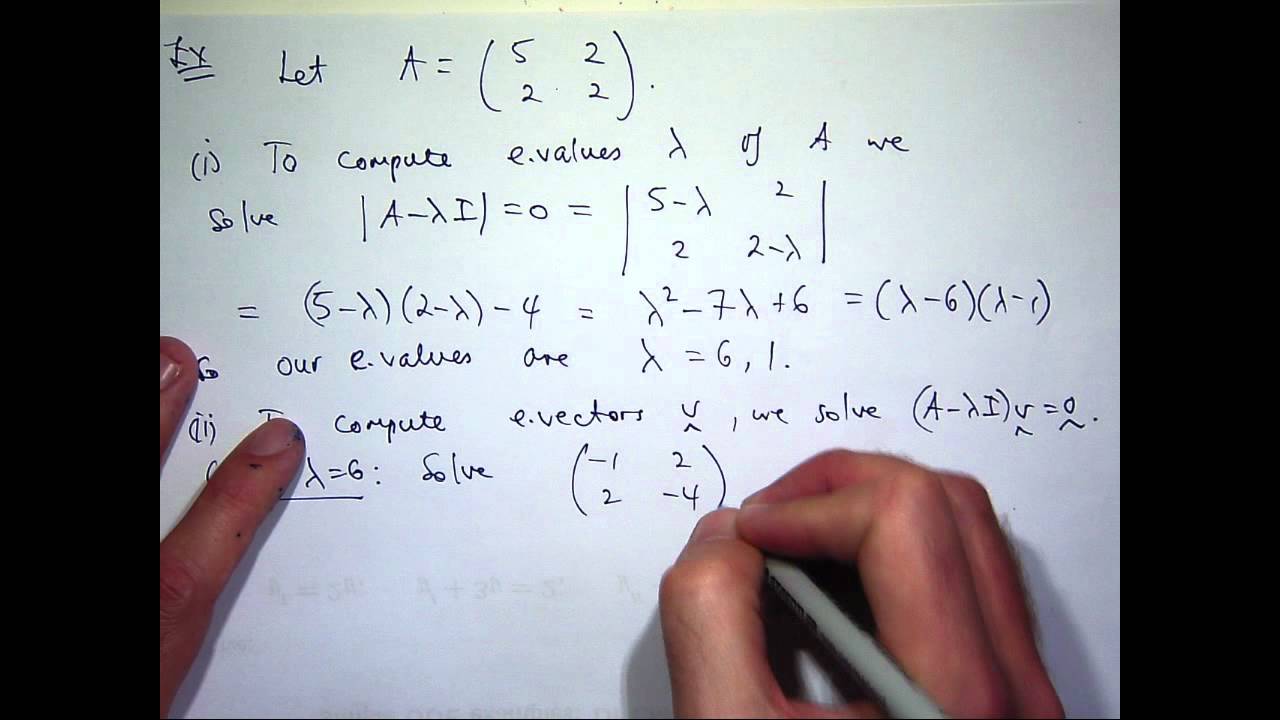 Ex Let A = ( 5 2 ; 2 2 ).
(i) To compute e.values λ of A we
solve |A-λI| = 0 = | 5-λ 2 ; 2 2-λ |
= (5-λ)(2-λ) - 4 = λ² - 7λ + 6 = (λ-6)(λ-1)
our e.values are λ = 6, 1.
(ii) compute e.vectors v, we solve (A-λI)v = 0.
λ=6: Solve ( -1 2 ; 2 -4 )